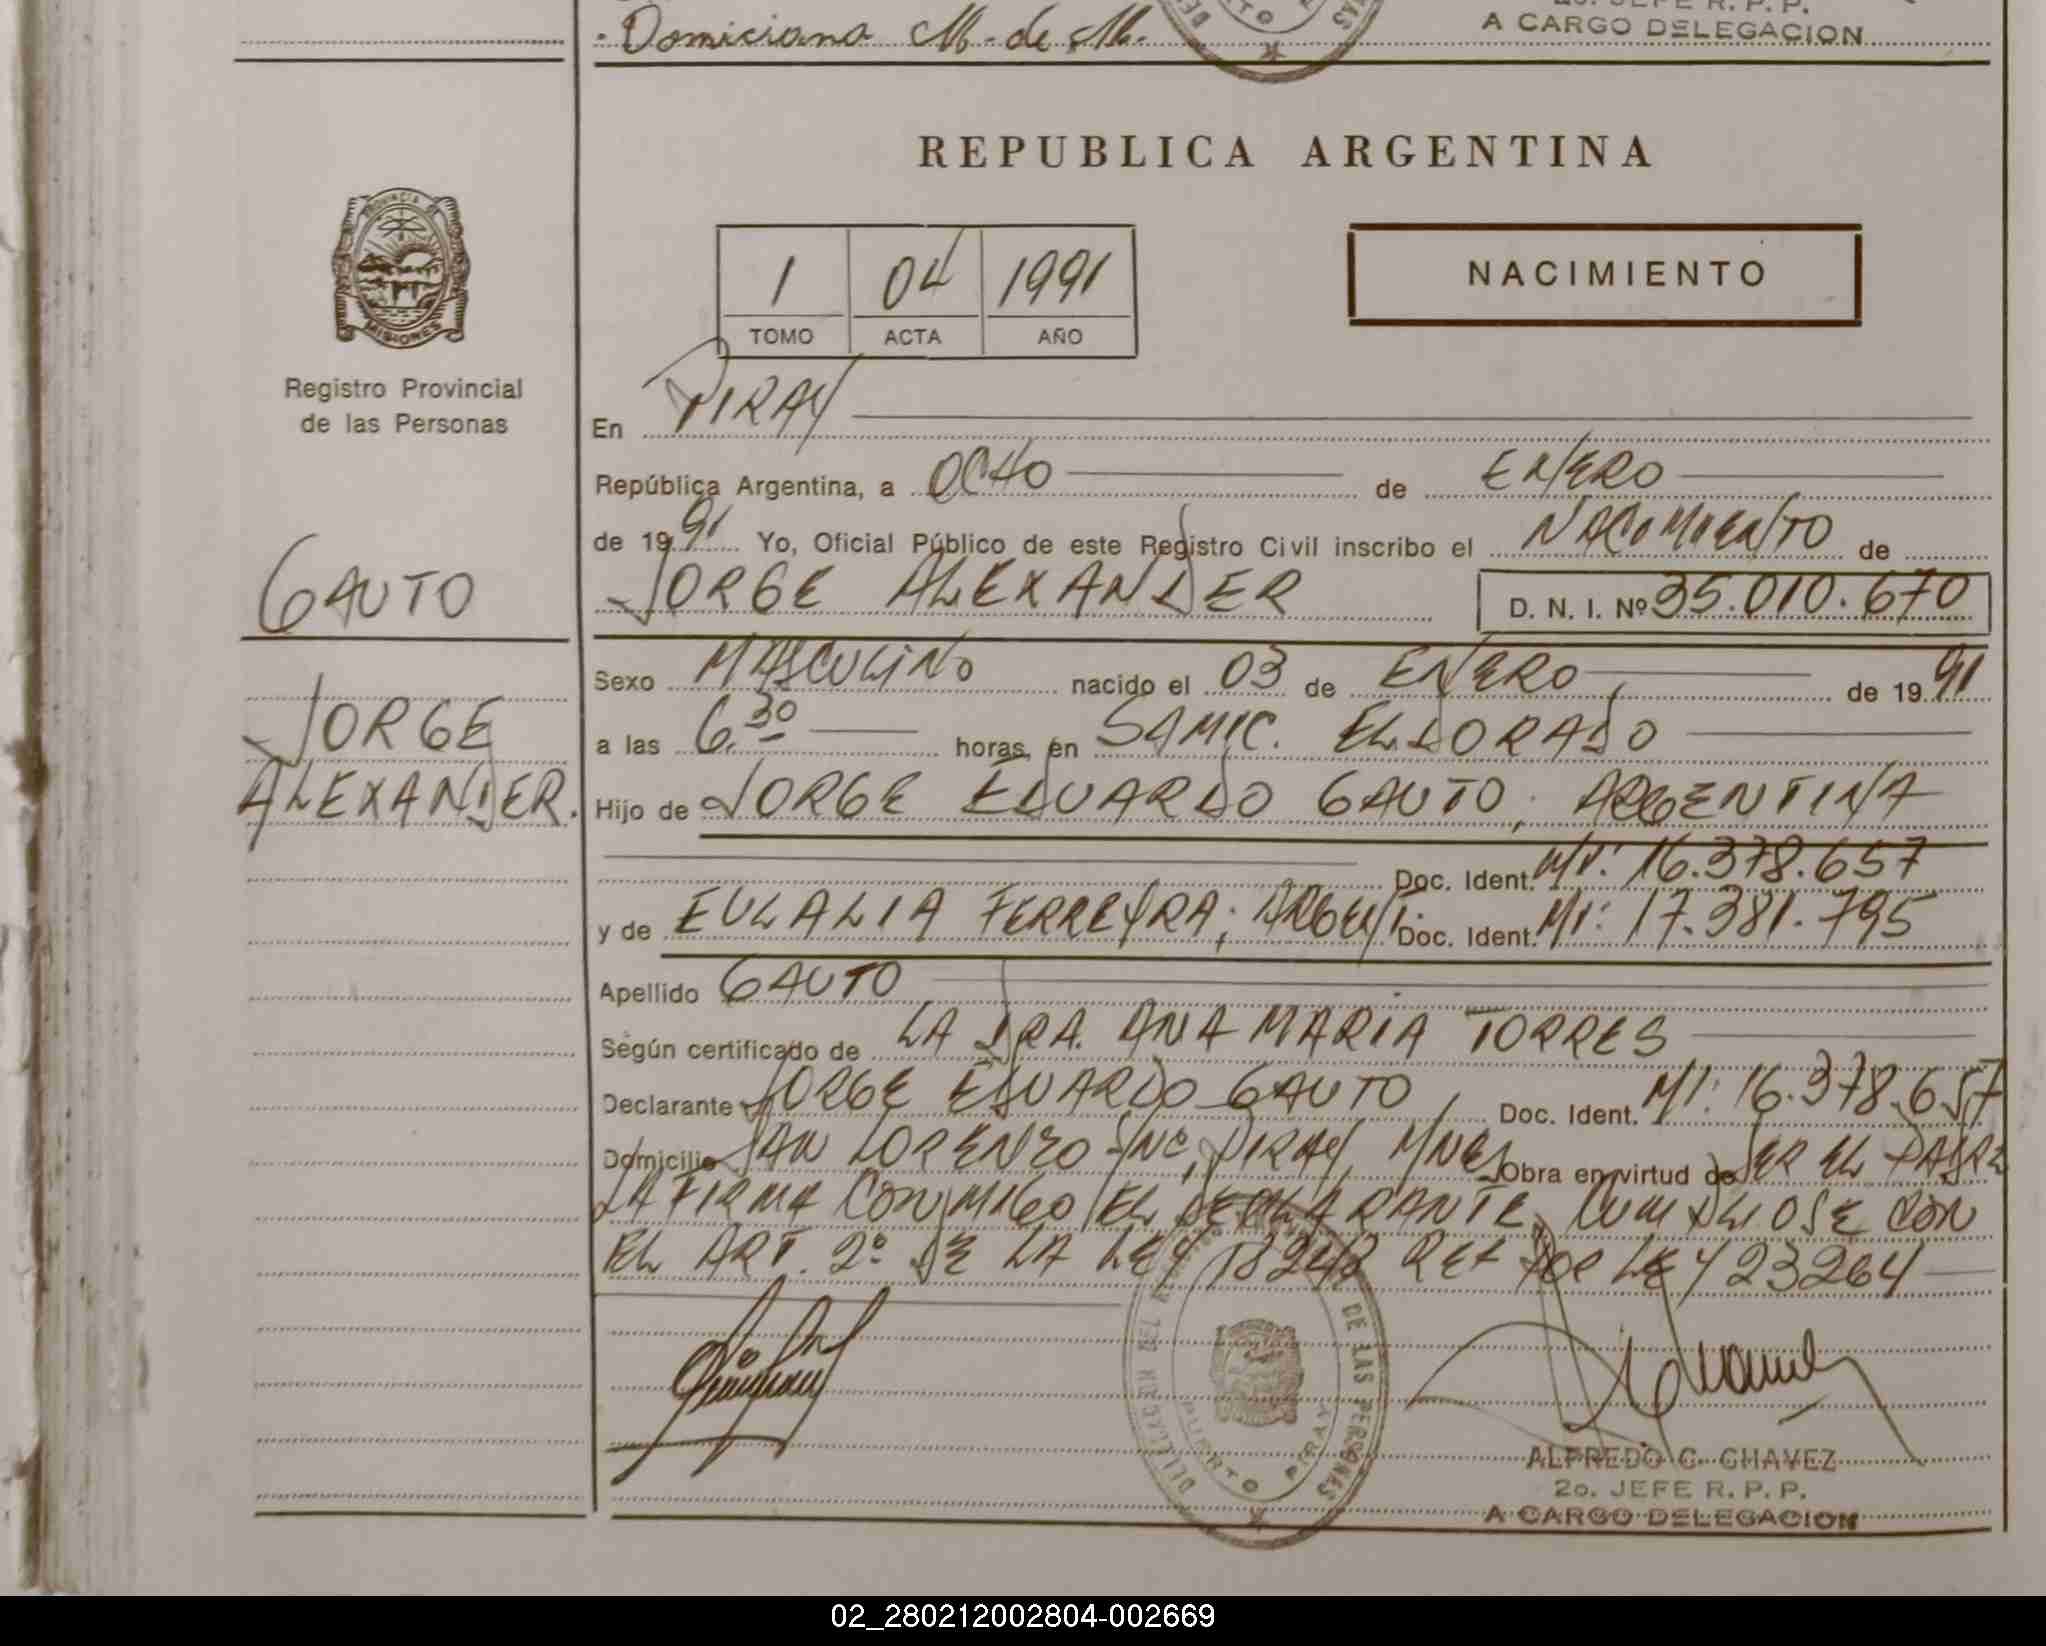 Domiciana M. de M.
2o. JEFE R. P. P.
A CARGO DELEGACION
REPUBLICA ARGENTINA
PROVINCIA DE
MISIONES
Registro Provincial
de las Personas
1 04 1991
TOMO ACTA AÑO
NACIMIENTO
En PIRAY
República Argentina, a OCHO de ENERO
de 1991 Yo, Oficial Público de este Registro Civil inscribo el NACIMIENTO de
JORGE ALEXANDER D. N. I. Nº 35.010.670
GAUTO
JORGE
ALEXANDER.
Sexo MASCULINO nacido el 03 de ENERO de 1991
a las 6.30 horas, en SAMIC. ELDORADO
Hijo de JORGE EDUARDO GAUTO; ARGENTINA
Doc. Ident. MI: 16.378.657
y de EULALIA FERREYRA; ARGENT. Doc. Ident. MI: 17.381.795
Apellido GAUTO
Según certificado de LA DRA. ANA MARIA TORRES
Declarante JORGE EDUARDO GAUTO, Doc. Ident. MI: 16.378.657
Domicilio SAN LORENZO SNC, PIRAY, MNES Obra en virtud de SER EL PADRE
LA FIRMA CONMIGO EL DECLARANTE. CUMPLIOSE CON
EL ART. 2º DE LA LEY 18248 REF POR LEY 23264
DELEGACION DE LAS PERSONAS
PUERTO PIRAY
ALFREDO C. CHAVEZ
2o. JEFE R. P. P.
A CARGO DELEGACION
02_280212002804-002669